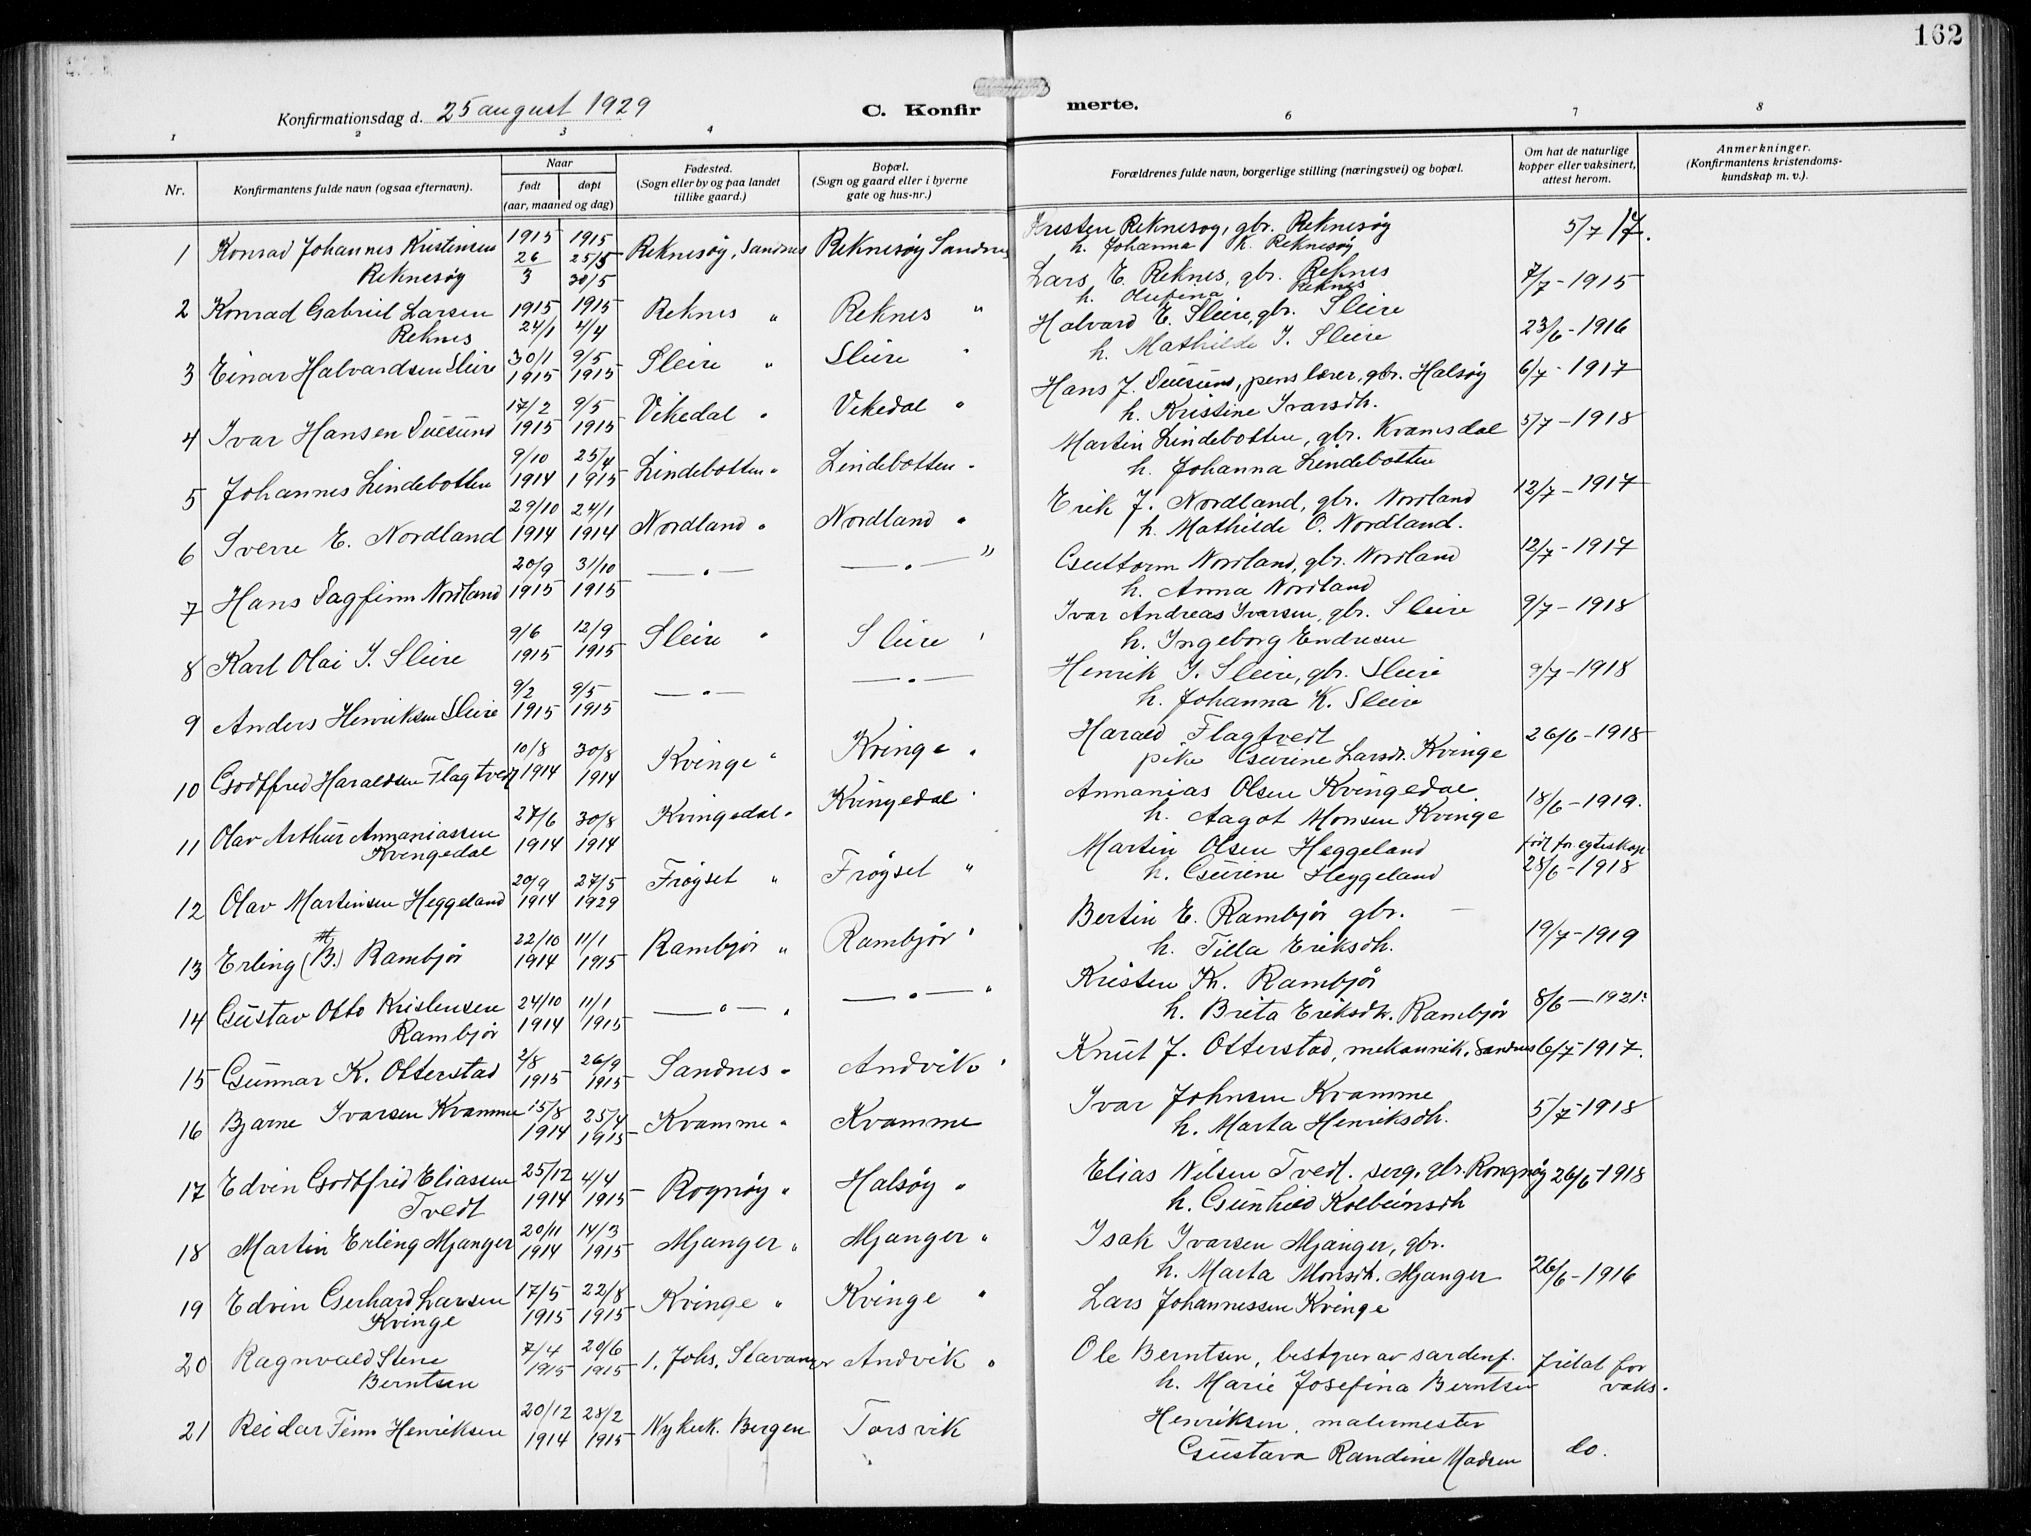 162
Konfirmationsdag d. 25 august 1929
C. Konfirmerte.
1 2 3 4 6 7 8
Nr. Konfirmantens fulde navn (ogsaa efternavn). Naar født døpt (aar, maaned og dag) Fødested. (Sogn eller by og paa landet tillike gaard.) Bopæl. (Sogn og gaard eller i byerne gate og hus-nr.) Forældrenes fulde navn, borgerlige stilling (næringsvei) og bopæl. Om hat de naturlige kopper eller vaksinert, attest herom. Anmerkninger. (Konfirmantens kristendoms-kundskap m. v.).
1 Konrad Johannes Kristensen 1915 1915 Reknesøy, Sandnes Reknesøy Sandnes Kristen Reknesøy, gbr. Reknesøy 5/7 17.
Reknesøy 26/3 25/5 30/5 h. Johanna K. Reknesøy
2 Konrad Gabriel Larsen 1915 1915 Reknes " Reknes " Lars E. Reknes, gbr. Reknes 7/7 - 1915
Reknes 24/1 4/4 h. Olufina Reknes
3 Einar Halvardsen Sleire 30/1 1915 9/5 1915 Sleire " Sleire " Halvard E. Sleire, gbr. Sleire 23/6 - 1916
h. Mathilde I. Sleire
4 Ivar Hansen Duesund 17/2 1915 9/5 1915 Vikedal " Vikedal " Hans J. Duesund, pens lærer, gbr. Halsøy 6/7 - 1917
h. Kristine Ivarsdh.
5 Johannes Lindebotten 9/10 1914 25/4 1915 Lindebotten " Lindebotten " Martin Lindebotten, gbr. Kvamsdal 5/7 - 1918
h. Johanna Lindebotten
6 Sverre E. Nordland 29/10 1914 24/1 1914 Nordland " Nordland " Erik J. Nordland, gbr. Nordland 12/7 - 1917
h. Mathilde O. Nordland.
7 Hans Dagfinn Nordland 20/9 1915 31/10 1915 — " — — " — " Guttorm Nordland, gbr. Nordland 12/7 - 1917
h. Anna Nordland
8 Karl Olai I. Sleire 9/6 1915 12/9 1915 Sleire " Sleire " Ivar Andreas Ivarsen, gbr. Sleire 9/7 - 1918
h. Ingeborg Endresen
9 Anders Henriksen Sleire 9/2 1915 9/5 1915 — " — — " — Henrik I. Sleire, gbr. Sleire 9/7 - 1918
h. Johanna K. Sleire
10 Godtfred Haraldsen Flagtvedt 10/8 1914 30/8 1914 Kvinge " Kvinge " Harald Flagtvedt 26/6 - 1918
pike Gurine Larsdt. Kvinge
11 Olav Arthur Annaniassen 27/6 1914 30/8 1914 Kvingedal " Kvingedal " Annanias Olsen Kvingedal 18/6 - 1919.
Kvingedal h. Aagot Monsen Kvinge
12 Olav Martinsen Heggeland 20/9 1914 27/5 1929 Frøyset " Frøyset " Martin Olsen Heggeland født før egteskap
h. Gurine Heggeland 28/6 - 1918
13 Erling (B.) Rambjør 22/10 1914 11/1 1915 Rambjør " Rambjør " Bertin E. Rambjør gbr. — 19/7 - 1919
h. Tilla Eriksdh.
14 Gustav Otto Kristensen 24/10 1914 11/1 1915 — " — " — " — " Kristen Kr. Rambjør
Rambjør h. Brita Eriksdh. Rambjør 8/6 - 1921.
15 Gunnar K. Otterstad 2/8 1915 26/9 1915 Sandnes " Andvik " Knut J. Otterstad, mekannik, Sandnes 6/7 - 1917.
16 Bjarne Ivarsen Kvamme 15/8 1914 25/4 1915 Kvamme " Kvamme Ivar Johnsen Kvamme 5/7 - 1918
h. Marta Henriksdh.
17 Edvin Godtfred Eliassen 25/12 1914 4/4 1915 Rognøy " Halsøy " Elias Nilsen Tvedt. serg. gbr. Rongnøy 26/6 - 1918
Tvedt h. Gunhild Kolbeinsdh
18 Martin Erling Mjanger 20/11 1914 14/3 1915 Mjanger " Mjanger " Isak Ivarsen Mjanger, gbr.
h. Marta Monsdh. Mjanger 26/6 - 1916
19 Edvin Gerhard Larsen 17/5 1915 22/8 1915 Kvinge " Kvinge " Lars Johannessen Kvinge
Kvinge
20 Ragnvald Stene 7/4 1915 20/6 1915 1. Johs. Stavanger Andvik " Ole Berntsen, bestyrer av sardinf. fritat for
Berntsen h. Marie Josefina Berntsen vaks.
21 Reidar Finn Henriksen 20/12 1914 28/2 1915 Nykirk. Bergen Torsvik Henriksen, malermester
Gustava Randine Madsen do.